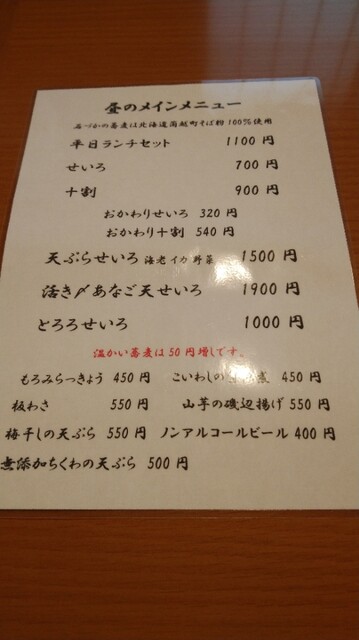 昼のメインメニュー
石づかの蕎麦は北海道蘭越町そば粉100%使用
平日ランチセット 1100 円
せいろ 700 円
十割 900 円
おかわりせいろ 320 円
おかわり十割 540 円
天ぷらせいろ 海老イカ野菜 1500 円
活き〆あなご天せいろ 1900 円
とろろせいろ 1000 円
温かい蕎麦は50円増しです。
もろみらっきょう 450 円 こいわしの 煮 450 円
板わさ 550 円 山芋の磯辺揚げ 550 円
梅干しの天ぷら 550 円 ノンアルコールビール 400 円
無添加ちくわの天ぷら 500 円